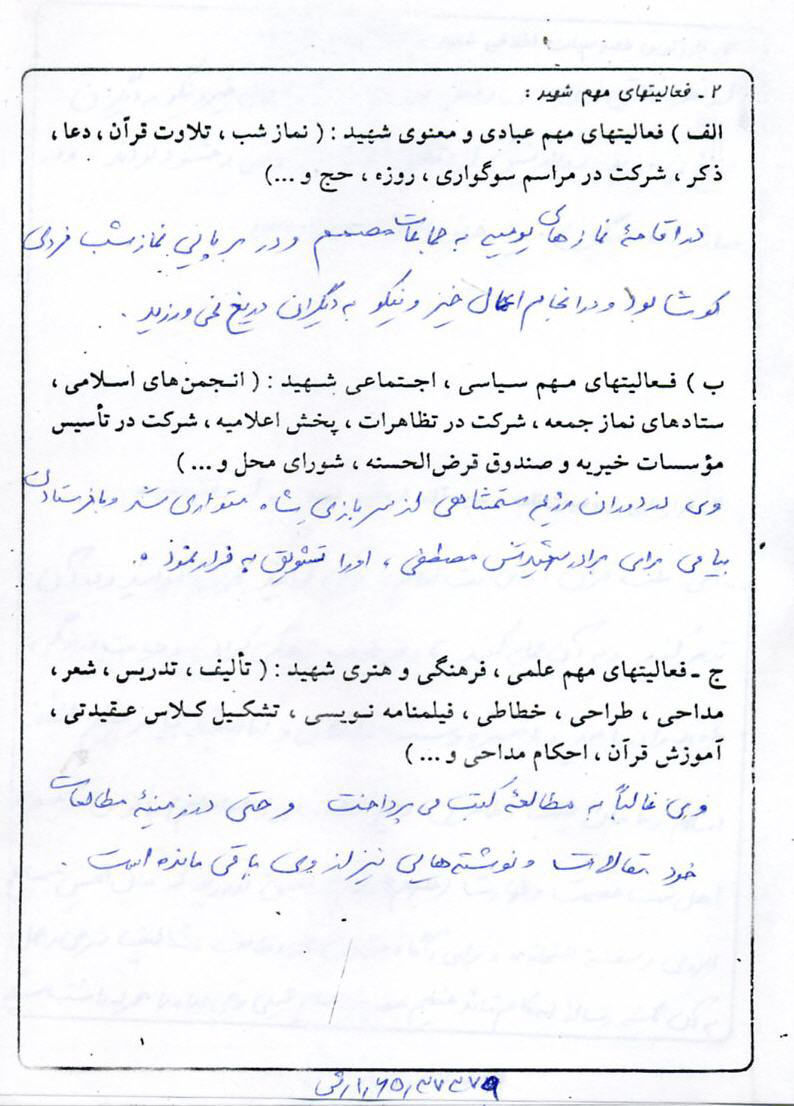 ۲ - فعالیتهای مهم شهید :
الف ) فعالیتهای مهم عبادی و معنوی شهید : ( نماز شب ، تلاوت قرآن ، دعا ،
ذکر ، شرکت در مراسم سوگواری ، روزه ، حج و ...)
در اقامهٔ نمازهای یومیه به جماعات مصمم و در برپایی نماز شب فردی
کوشا بود و در انجام اعمال خیر و نیکو به دیگران دریغ نمی ورزید .
ب ) فعالیتهای مهم سیاسی ، اجتماعی شهید : ( انجمن‌های اسلامی ،
ستادهای نماز جمعه ، شرکت در تظاهرات ، پخش اعلامیه ، شرکت در تأسیس
مؤسسات خیریه و صندوق قرض‌الحسنه ، شورای محل و ... )
وی در دوران رژیم ستمشاهی از سربازی شاه متواری شد و با فرستادن
پیامی برای برادر شهیدش مصطفی ، او را تشویق به فرار نمود .
ج - فعالیتهای مهم علمی ، فرهنگی و هنری شهید : ( تألیف ، تدریس ، شعر ،
مداحی ، طراحی ، خطاطی ، فیلمنامه نویسی ، تشکیل کلاس عقیدتی ،
آموزش قرآن ، احکام مداحی و ... )
وی غالباً به مطالعهٔ کتب می پرداخت و حتی در زمینهٔ مطالعات
خود مقالات و نوشته‌هایی نیز از وی باقی مانده است .
۱